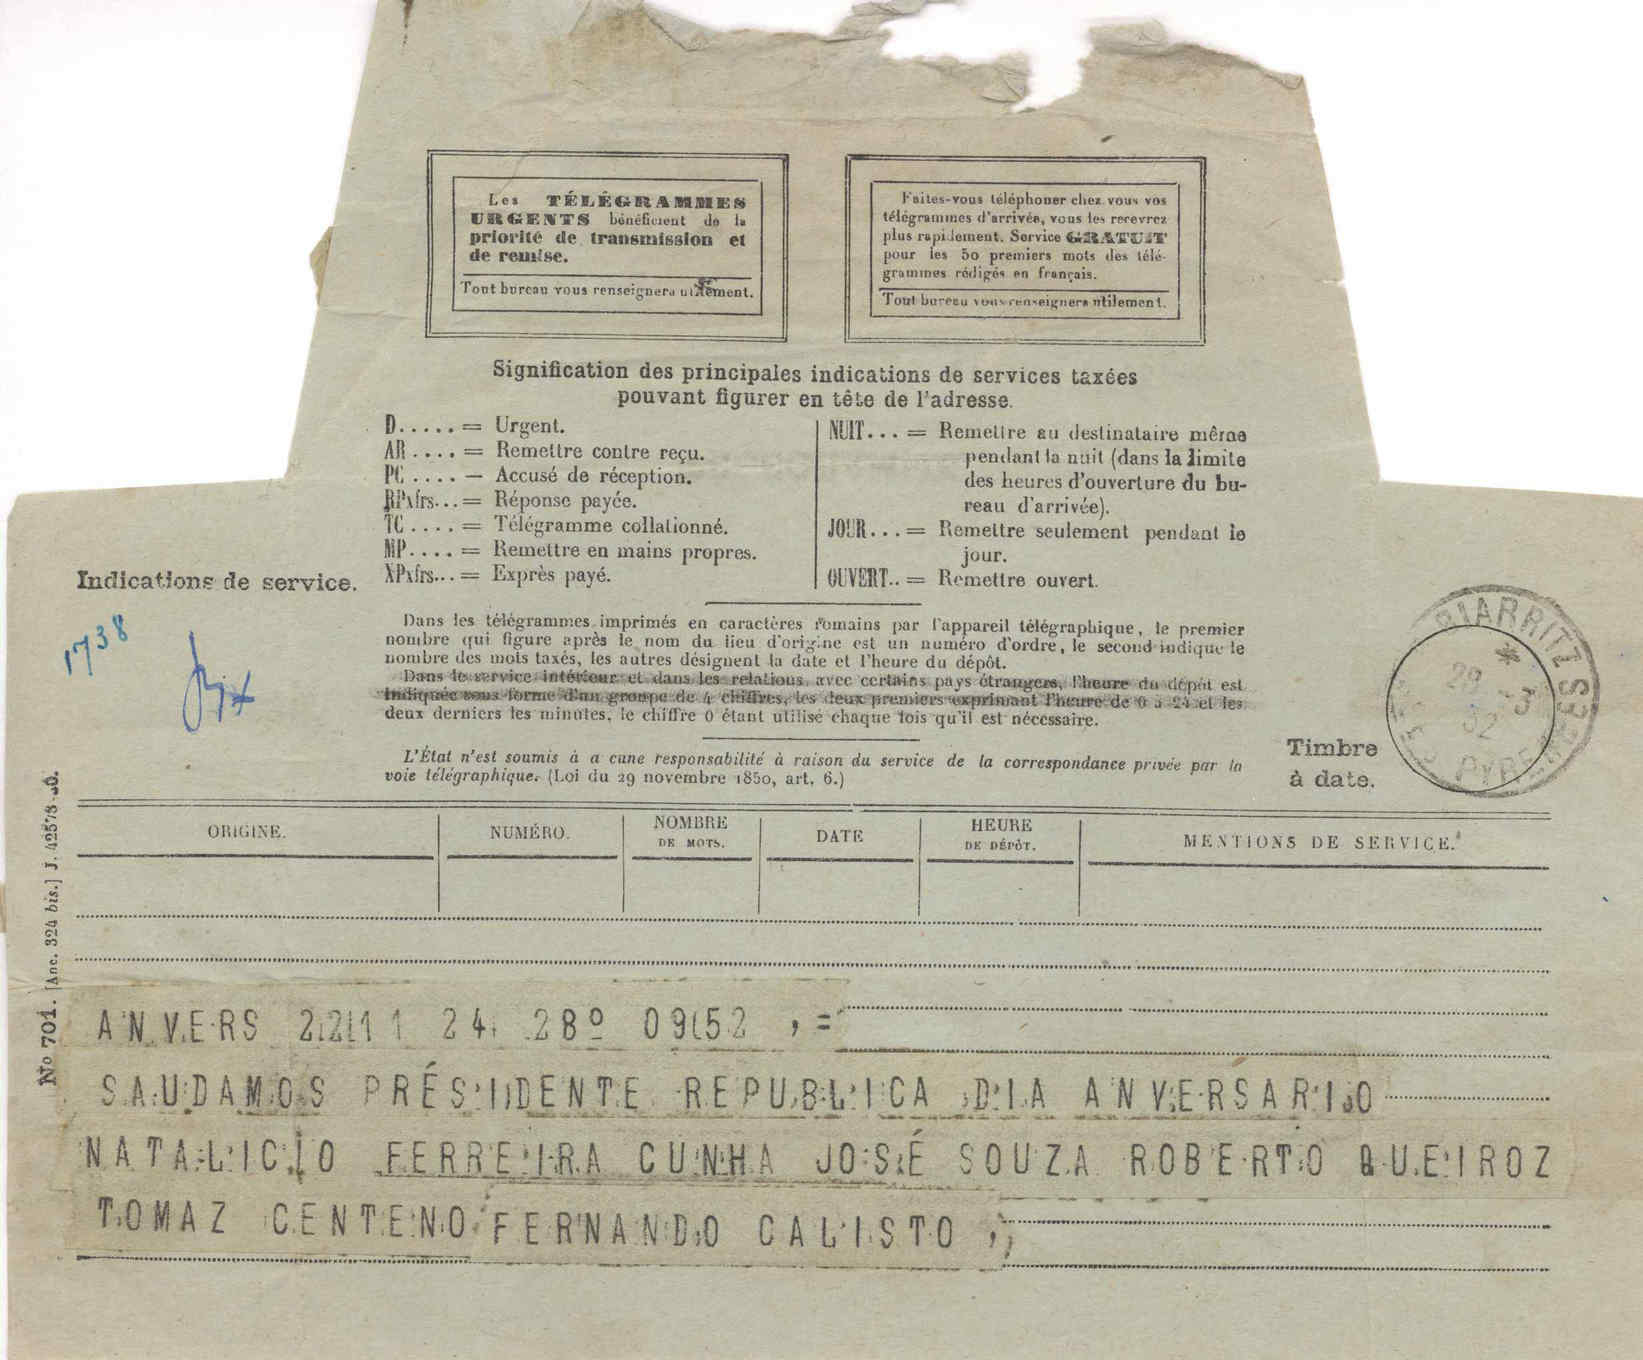 Les TÉLÉGRAMMES
URGENTS bénéficient de la
priorité de transmission et
de remise.
Tout bureau vous renseignera utilement.
Faites-vous téléphoner chez vous vos
télégrammes d'arrivée, vous les recevrez
plus rapidement. Service GRATUIT
pour les 50 premiers mots des télé-
grammes rédigés en français.
Tout bureau vous renseignera utilement.
Signification des principales indications de services taxées
pouvant figurer en tête de l'adresse.
D..... = Urgent.
AR .... = Remettre contre reçu.
PC .... — Accusé de réception.
RPxfrs... = Réponse payée.
TC .... = Télégramme collationné.
MP.... = Remettre en mains propres.
XPxfrs... = Exprès payé.
NUIT... = Remettre au destinataire même
pendant la nuit (dans la limite
des heures d'ouverture du bu-
reau d'arrivée).
JOUR... = Remettre seulement pendant le
jour.
OUVERT.. = Remettre ouvert.
Indications de service.
1738
Dans les télégrammes imprimés en caractères romains par l'appareil télégraphique, le premier
nombre qui figure après le nom du lieu d'origine est un numéro d'ordre, le second indique le
nombre des mots taxés, les autres désignent la date et l'heure du dépôt.
Dans le service intérieur et dans les relations avec certains pays étrangers, l'heure du dépôt est
indiquée sous forme d'un groupe de 4 chiffres, les deux premiers exprimant l'heure de 0 à 24 et les
deux derniers les minutes, le chiffre 0 étant utilisé chaque fois qu'il est nécessaire.
L'État n'est soumis à a cune responsabilité à raison du service de la correspondance privée par la
voie télégraphique. (Loi du 29 novembre 1850, art. 6.)
Timbre
à date.
BIARRITZ
28 -3
32
PYRENEES
ORIGINE.
NUMÉRO.
NOMBRE
DE MOTS.
DATE
HEURE
DE DÉPÔT.
MENTIONS DE SERVICE.
No 701. [Anc. 324 bis.] J. 42573
ANVERS 2211 24 28º 0952 ,=
SAUDAMOS PRÉSIDENTE REPUBLICA DIA ANVERSARIO
NATALICIO FERREIRA CUNHA JOSÉ SOUZA ROBERTO QUEIROZ
TOMAZ CENTENO FERNANDO CALISTO ,